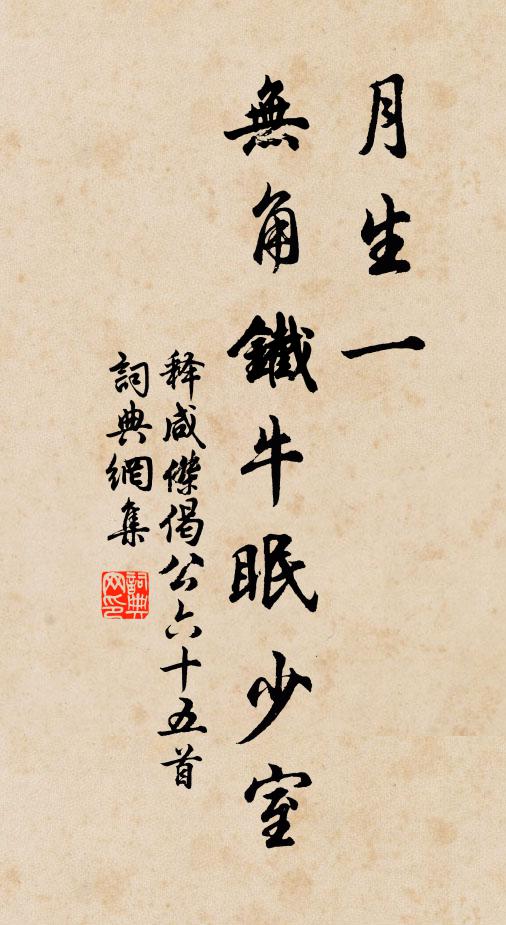 月生一
無角鐵牛眠少室
释咸傑偈公六十五首
詞典網集
詞典网印